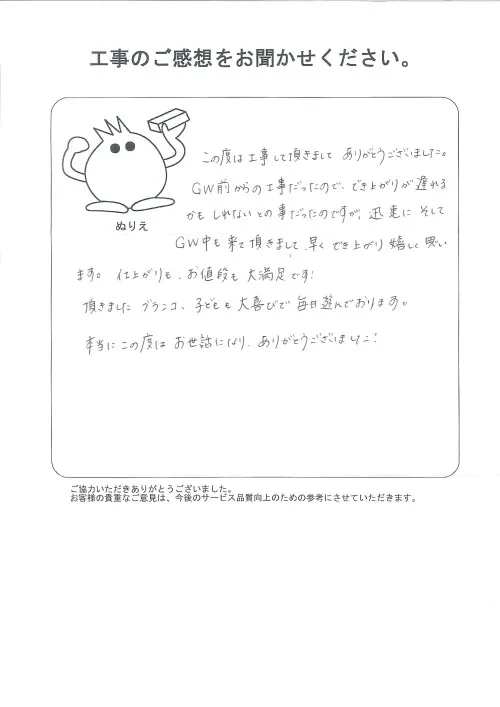 工事のご感想をお聞かせください。
この度は工事して頂きまして ありがとうございました。
GW前からの工事だったので、でき上がりが遅れる
かもしれないとの事だったのですが、迅速に そして
GW中も来て頂きまして、早く でき上がり 嬉しく思い
ぬりえ
ます。仕上がりも、お値段も 大満足です!
頂きました ブランコ、子どもも 大喜びで 毎日遊んでおります。
本当に この度は お世話になり、ありがとうございました!
ご協力いただきありがとうございました。
お客様の貴重なご意見は、今後のサービス品質向上のための参考にさせていただきます。